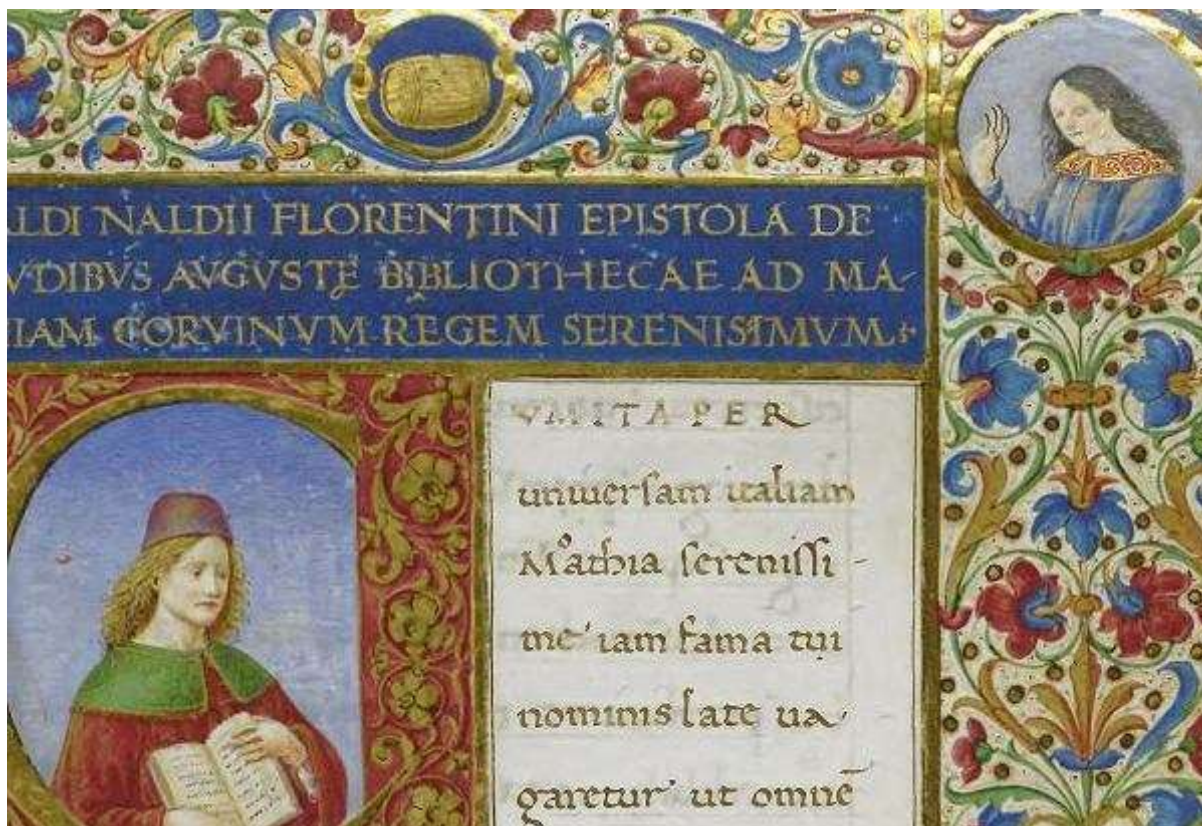 ALDI NALDII FLORENTINI EPISTOLA DE
VDIBVS AVGVSTĘ BIBLIOTHECAE AD MA-
IAM CORVINVM REGEM SERENISIMVM
VM ITA PER
uniuerſam italiam
Mathia ſereniſſi-
me iam fama tui
nominis late ua-
garetur ut omnē